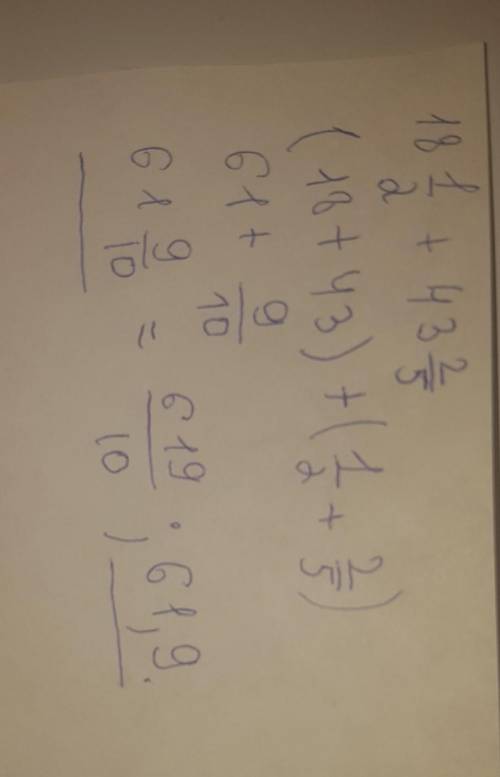 18 1/2 + 43 2/5
(18 + 43) + (1/2 + 2/5)
61 + 9/10
61 9/10 = 619/10 ; 61,9.